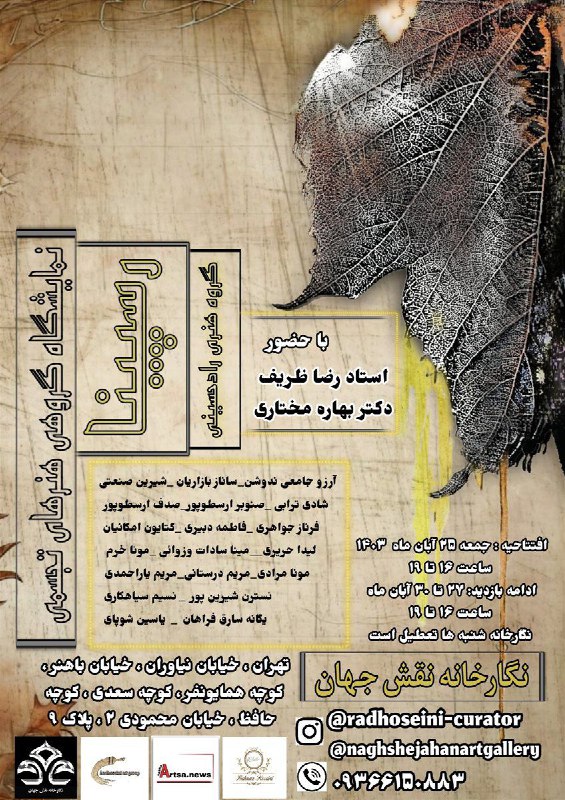 نمایشگاه گروهی هنرهای تجسمی
رسپینا
گروه هنری رادحسینی
با حضور
استاد رضا ظریف
دکتر بهاره مختاری
آرزو جامعی ندوشن_ساناز بازاریان _شیرین صنعتی
شادی ترابی _صنوبر ارسطوپور_صدف ارسطوپور
فرناز جواهری _فاطمه دبیری _کتایون امکانیان
لیدا حریری_ مینا سادات وزوانی _مونا خرم
مونا مرادی_مریم درستانی_مریم یاراحمدی
نسترن شیرین پور _ نسیم سیاهکاری
یگانه سارق فراهان _ یاسین شوپای
افتتاحیه : جمعه ۲۵ آبان ماه ۱۴۰۳
ساعت ۱۶ تا ۱۹
ادامه بازدید: ۲۷ تا ۳۰ آبان ماه
ساعت ۱۶ تا ۱۹
نگارخانه شنبه ها تعطیل است
نگارخانه نقش جهان
تهران ، خیابان نیاوران ، خیابان باهنر،
کوچه همایونفر، کوچه سعدی ، کوچه
حافظ ، خیابان محمودی ۲ ، پلاک ۹
@radhoseini-curator
@naghshejahanartgallery
۰۹۳۶۶۱۵۰۸۸۳
نگارخانه نقش جهان
Radhoseini art group
Artsa.news